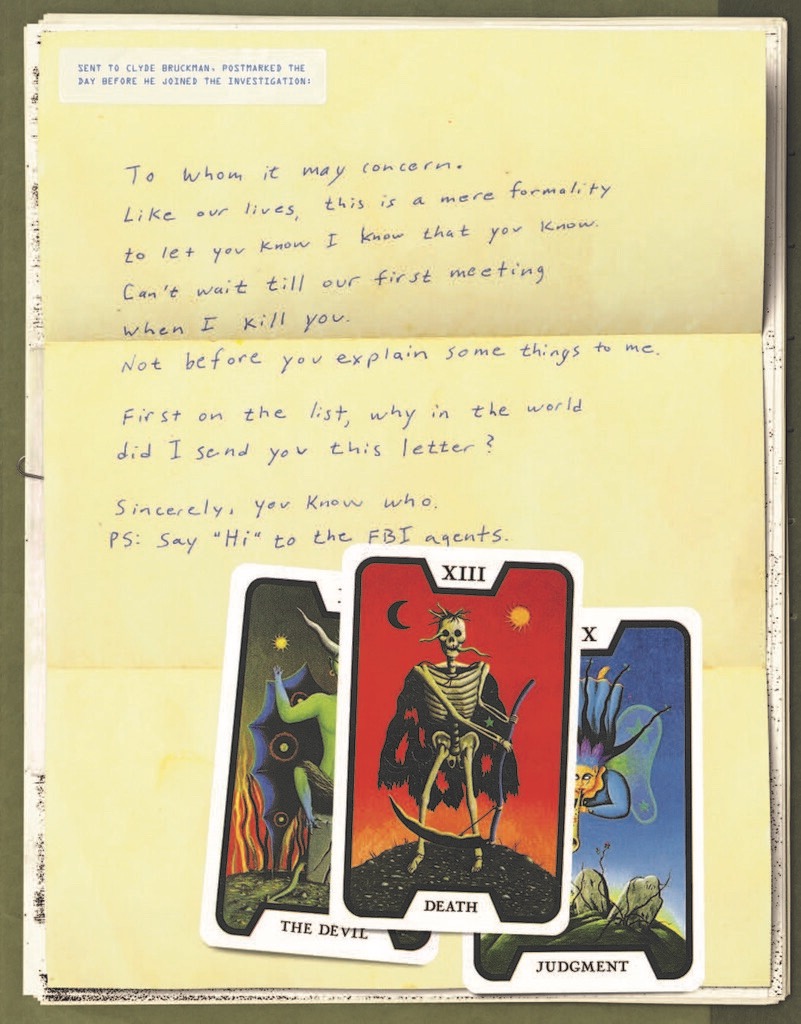 SENT TO CLYDE BRUCKMAN, POSTMARKED THE
DAY BEFORE HE JOINED THE INVESTIGATION:
To whom it may concern.
Like our lives, this is a mere formality
to let you know I know that you know.
Can't wait till our first meeting
when I kill you.
Not before you explain some things to me.
First on the list, why in the world
did I send you this letter?
Sincerely, you know who.
PS: Say "Hi" to the FBI agents.
XIII
X
DEATH
THE DEVIL
JUDGMENT